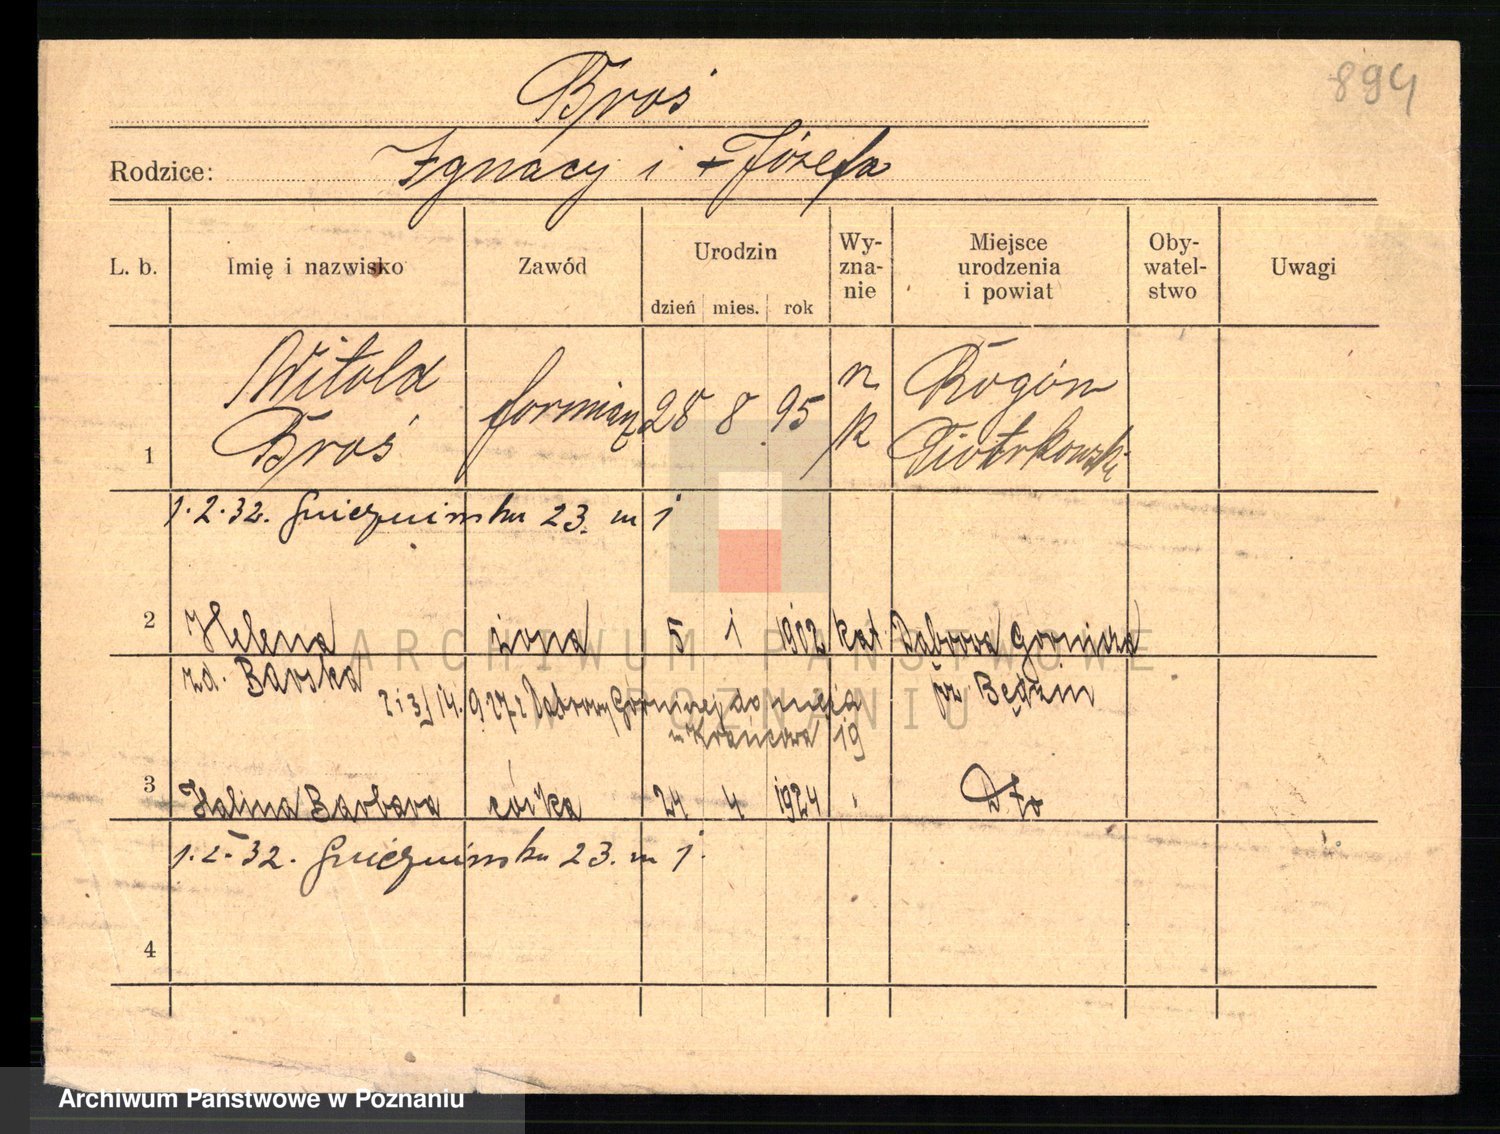 894
Broś
Rodzice: Ignacy i + Józefa
L. b. Imię i nazwisko Zawód Urodzin dzień mies. rok Wy-zna-nie Miejsce urodzenia i powiat Oby-watel-stwo Uwagi
1 Witold Broś 28 8 95 Rogów Piotrkowski
1.2.32. Gnieźnieńska 23. m 1
2 Helena żona 5 1 1902 kat. Dąbrowa Gornicza
zd. Barska pz Będzin
2 i 3/ 14. 9 27 z Dąbrowy Gorniczej do męża
19
3 Halina Barbara córka 24 4 1924 " Dto
1.2.32. Gnieźnieńska 23. m 1.
4
ARCHIWUM PAŃSTWOWE
W POZNANIU
Archiwum Państwowe w Poznaniu